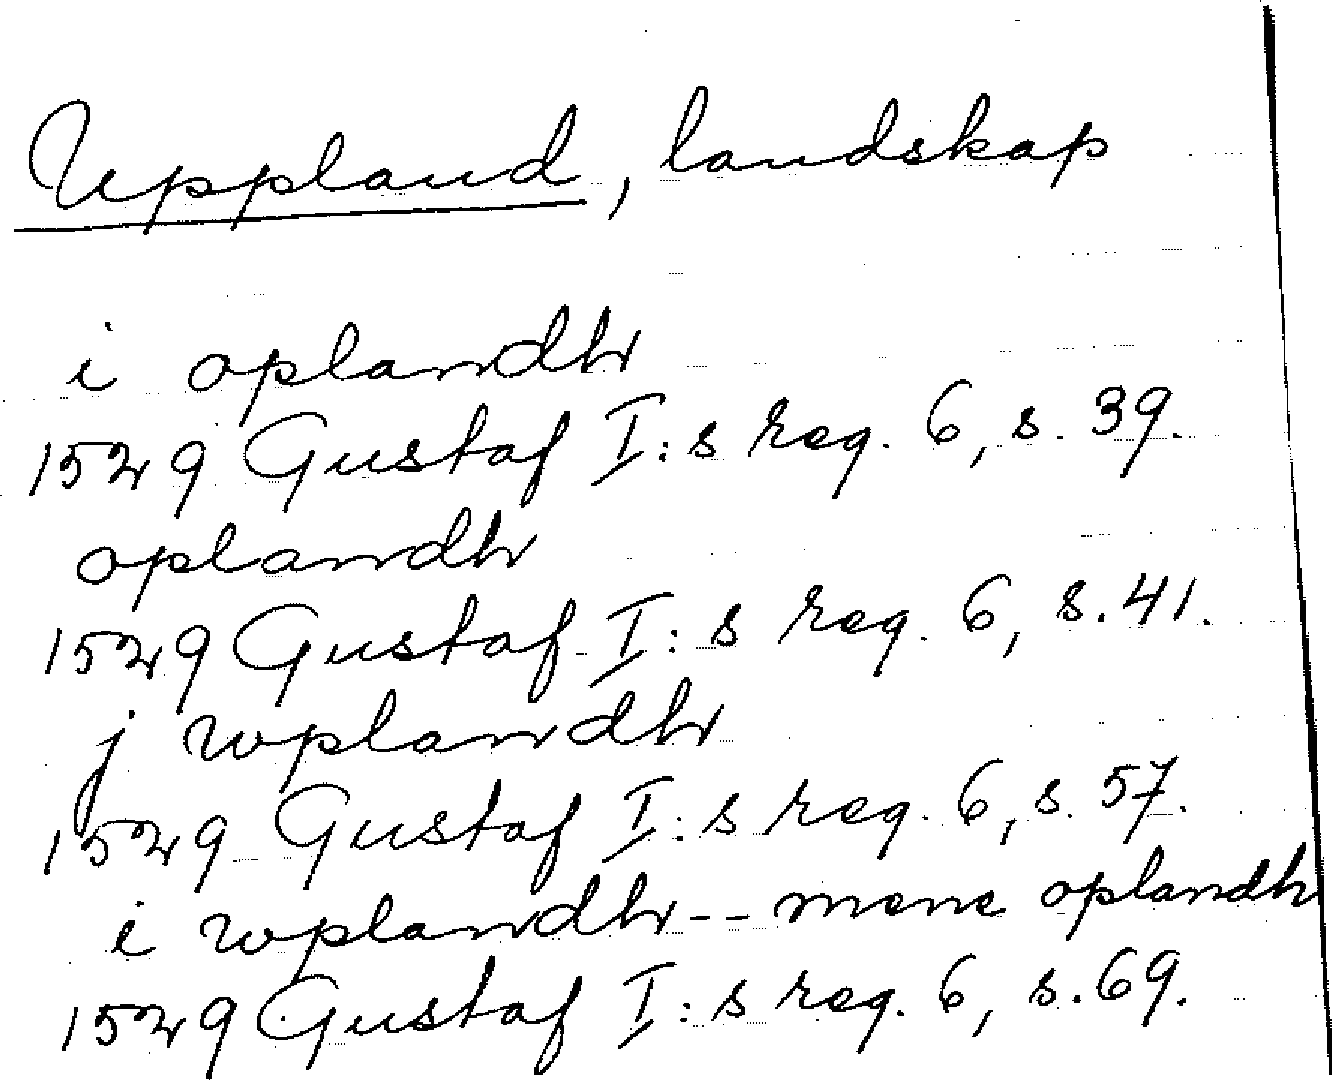 Uppland, landskap
i oplandh
1529 Gustaf I:s reg. 6, s. 39.
oplandh
1529 Gustaf I:s reg. 6, s. 41.
j wplandh
1529 Gustaf I:s reg. 6, s. 57.
i wplandh -- mene oplandh
1529 Gustaf I:s reg. 6, s. 69.